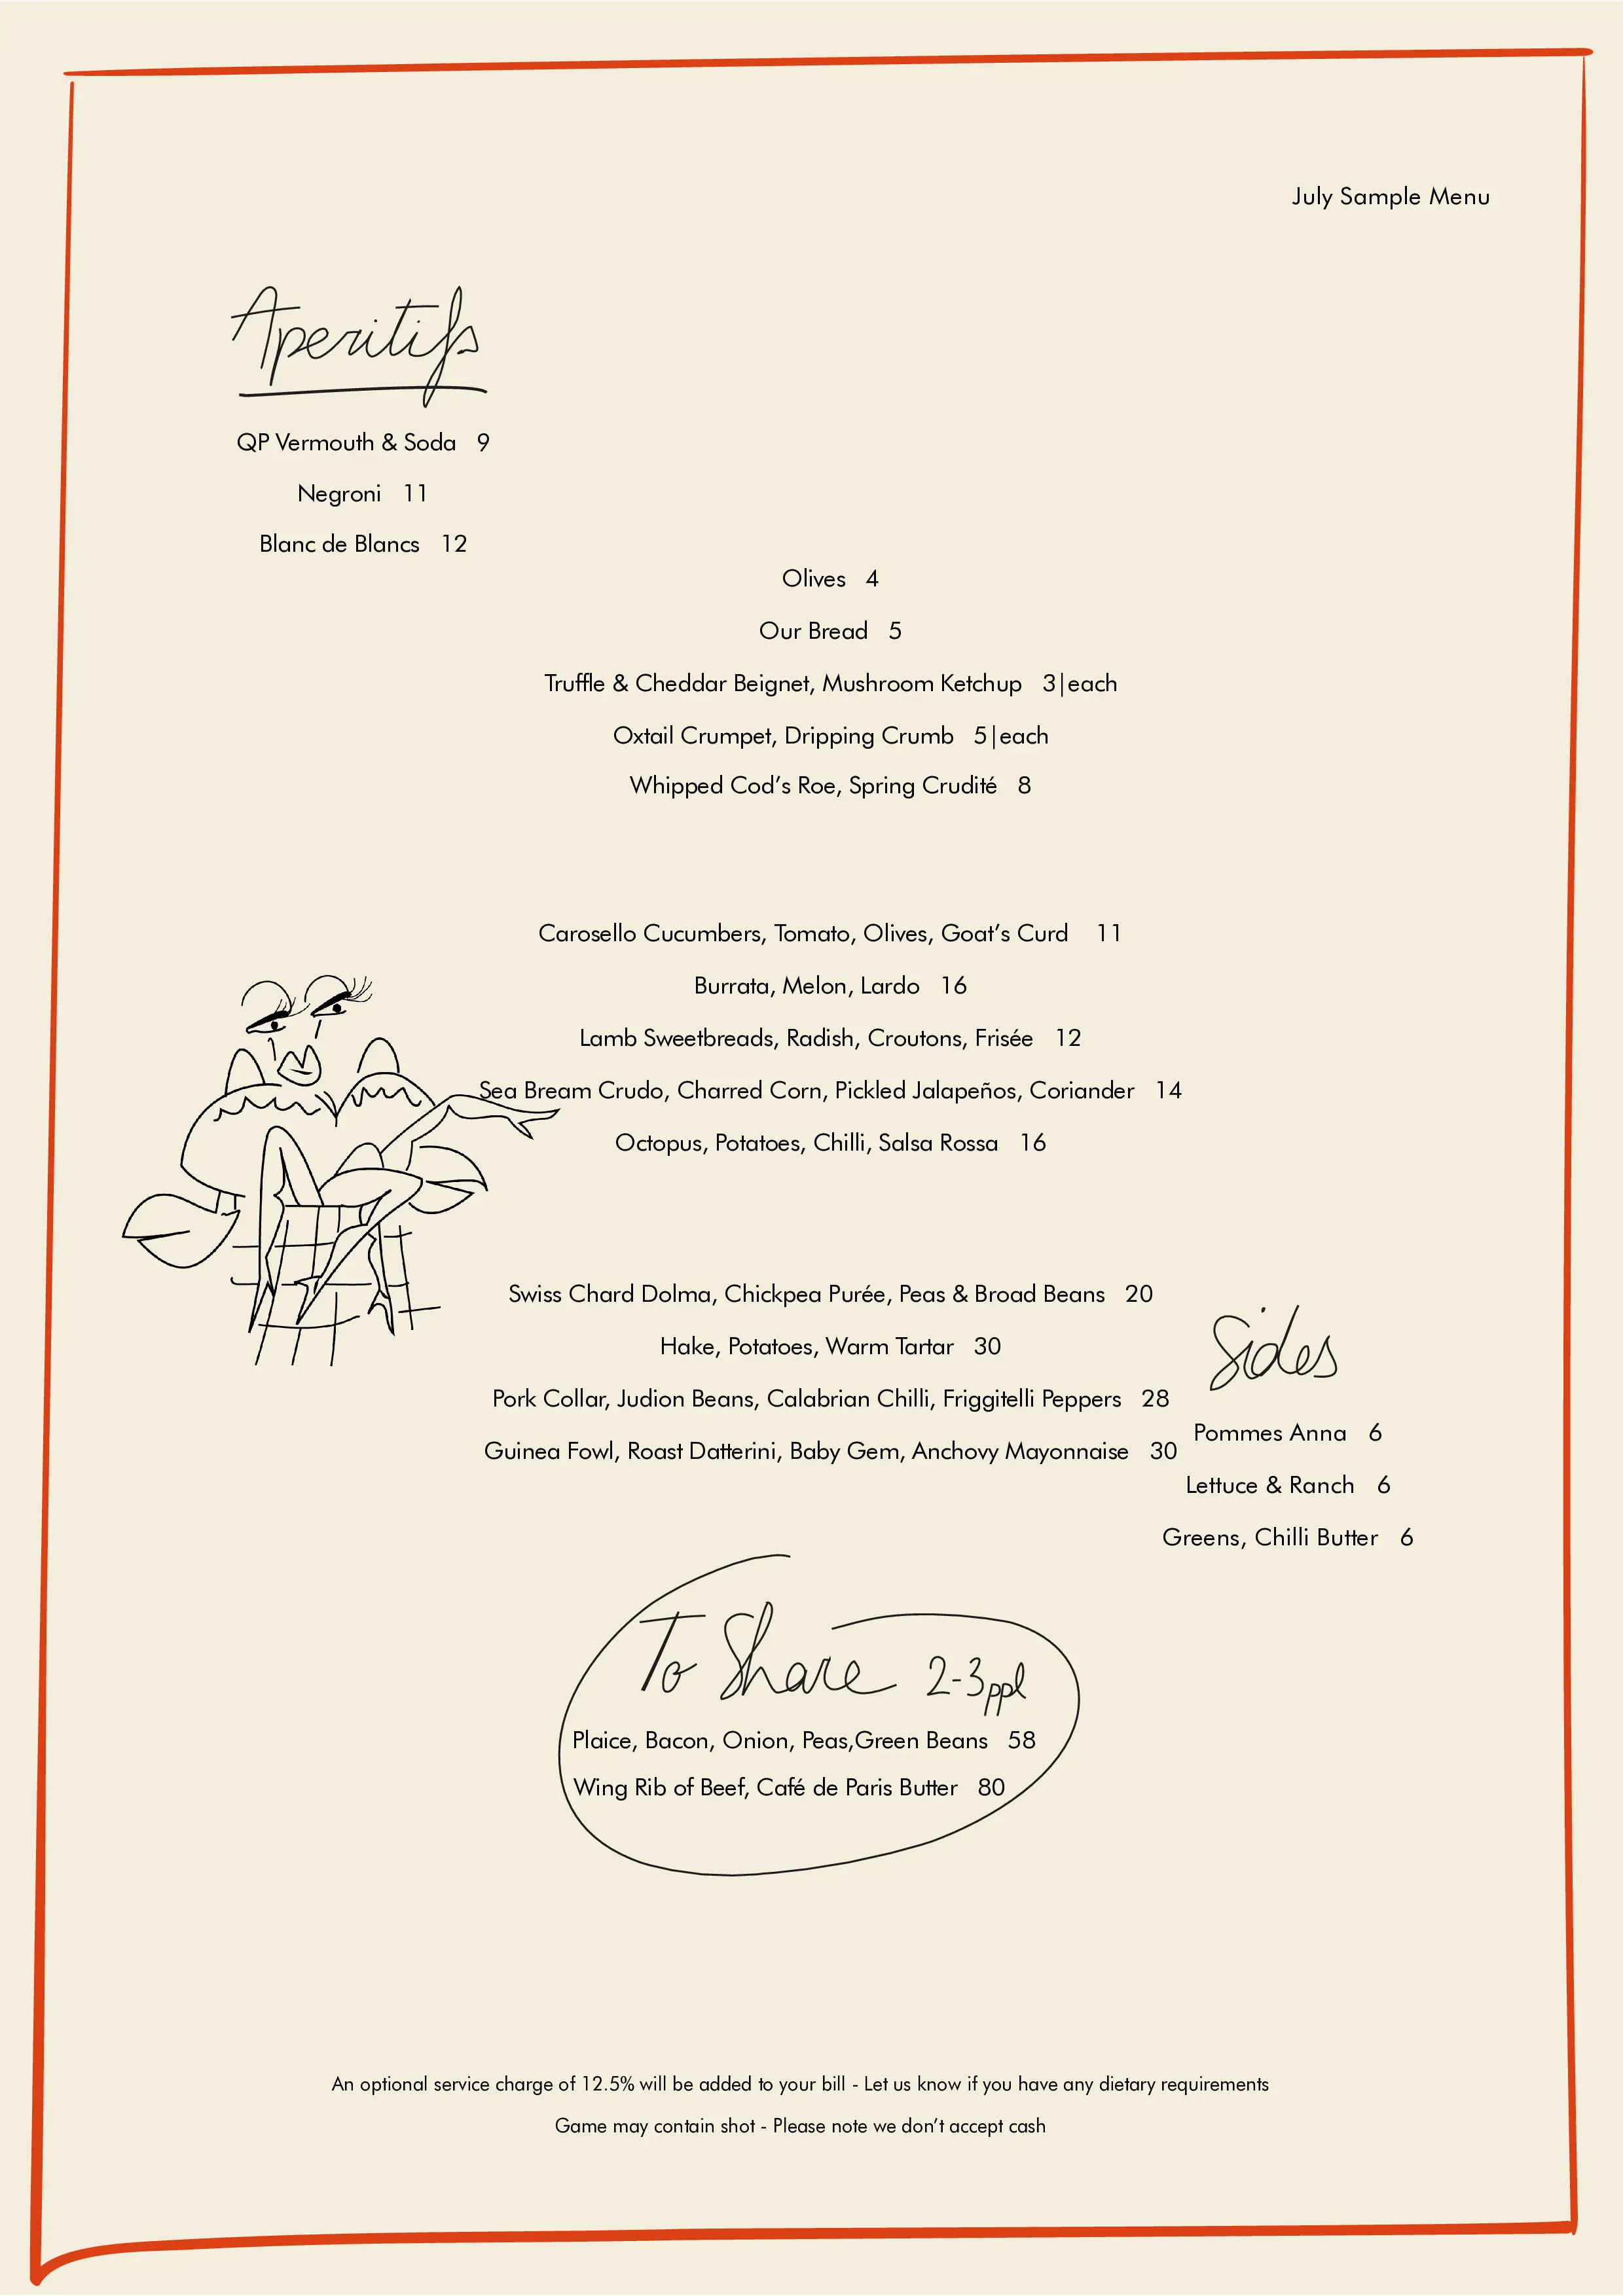 July Sample Menu
Aperitifs
QP Vermouth & Soda 9
Negroni 11
Blanc de Blancs 12
Olives 4
Our Bread 5
Truffle & Cheddar Beignet, Mushroom Ketchup 3|each
Oxtail Crumpet, Dripping Crumb 5|each
Whipped Cod’s Roe, Spring Crudité 8
Carosello Cucumbers, Tomato, Olives, Goat’s Curd 11
Burrata, Melon, Lardo 16
Lamb Sweetbreads, Radish, Croutons, Frisée 12
Sea Bream Crudo, Charred Corn, Pickled Jalapeños, Coriander 14
Octopus, Potatoes, Chilli, Salsa Rossa 16
Swiss Chard Dolma, Chickpea Purée, Peas & Broad Beans 20
Hake, Potatoes, Warm Tartar 30
Pork Collar, Judion Beans, Calabrian Chilli, Friggitelli Peppers 28
Guinea Fowl, Roast Datterini, Baby Gem, Anchovy Mayonnaise 30
Sides
Pommes Anna 6
Lettuce & Ranch 6
Greens, Chilli Butter 6
To Share 2-3ppl
Plaice, Bacon, Onion, Peas,Green Beans 58
Wing Rib of Beef, Café de Paris Butter 80
An optional service charge of 12.5% will be added to your bill - Let us know if you have any dietary requirements
Game may contain shot - Please note we don’t accept cash